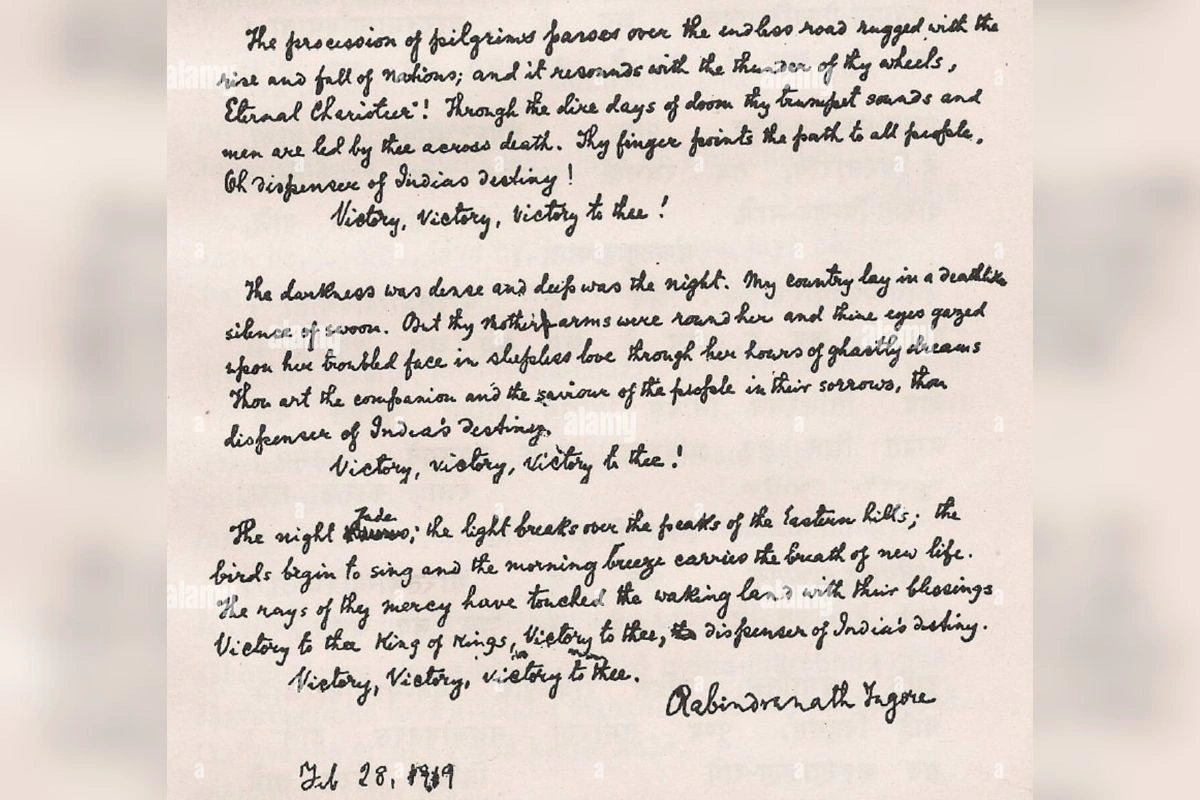 The procession of pilgrims passes over the endless road rugged with the
rise and fall of nations; and it resounds with the thunder of thy wheels,
Eternal Charioteer! Through the dire days of doom thy trumpet sounds and
men are led by thee across death. Thy finger points the path to all people.
Oh dispenser of India's destiny!
Victory, victory, victory to thee!
The darkness was dense and deep was the night. My country lay in a deathlike
silence of swoon. But thy mother arms were round her and thine eyes gazed
upon her troubled face in sleepless love through her hours of ghastly dreams
Thou art the companion and the saviour of the people in their sorrows, thou
dispenser of India's destiny.
Victory, victory, victory to thee!
The night fade; the light breaks over the peaks of the Eastern hills; the
birds begin to sing and the morning breeze carries the breath of new life.
The rays of thy mercy have touched the waking land with their blessings
Victory to thee King of Kings, Victory to thee, dispenser of India's destiny.
Victory, Victory, victory to thee.
Rabindranath Tagore
Feb 28, 1919
alamy